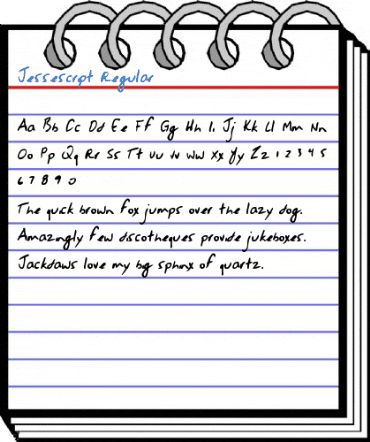 Jessescript Regular
Aa Bb Cc Dd Ee Ff Gg Hh Ii Jj Kk Ll Mm Nn
Oo Pp Qq Rr Ss Tt Uu Vv Ww Xx Yy Zz 1 2 3 4 5
6 7 8 9 0
The quick brown fox jumps over the lazy dog.
Amazingly few discotheques provide jukeboxes.
Jackdaws love my big sphinx of quartz.